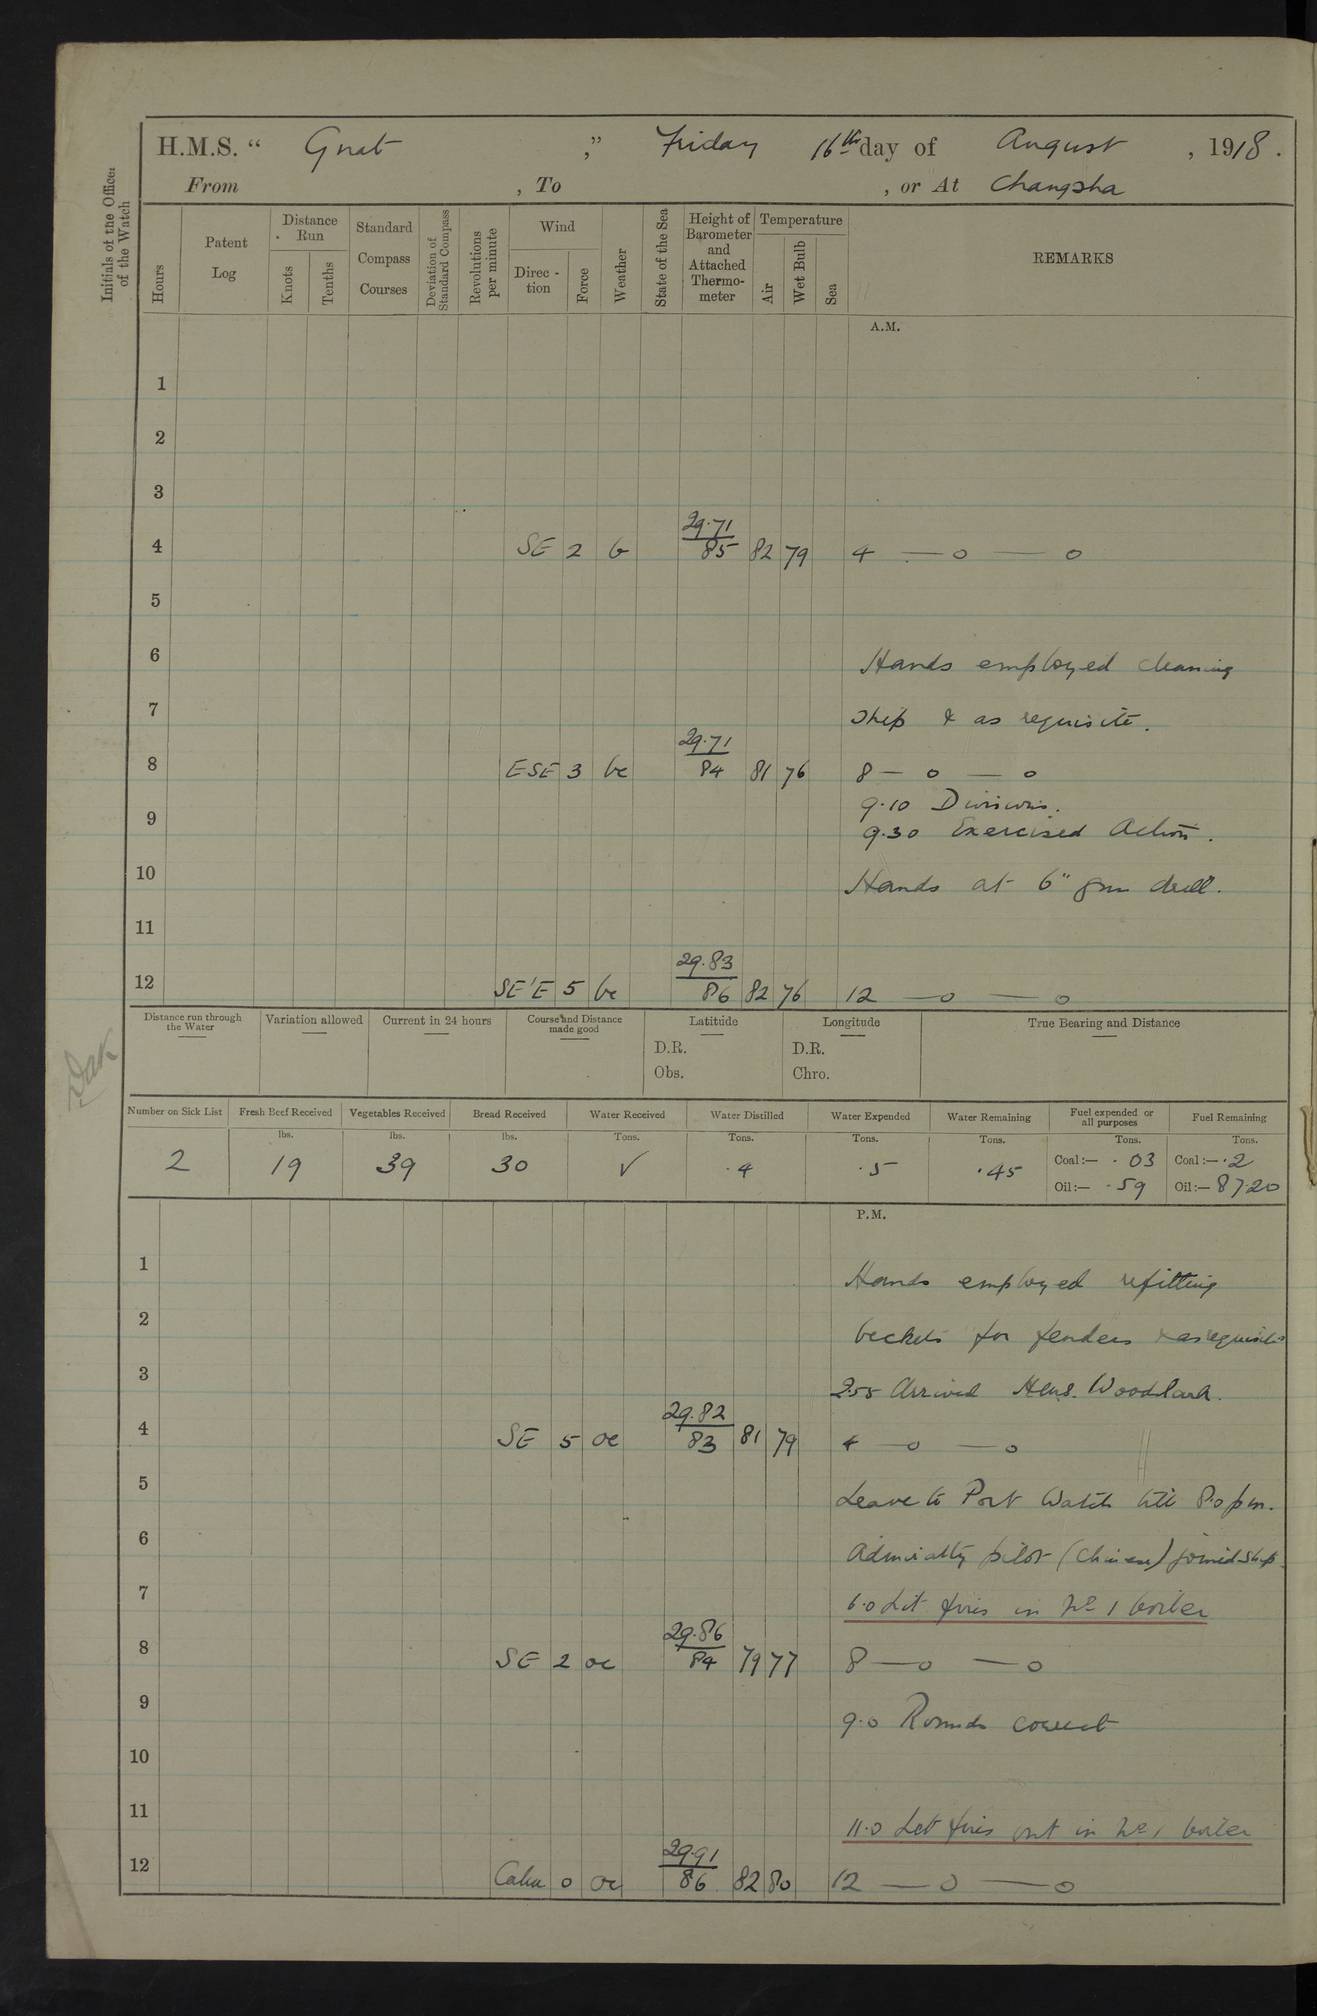 H.M.S. “ Gnat ,” Friday 16th day of August , 1918 .
From , To , or At Changsha
Initials of the Officer of the Watch
Hours
Patent Log
Distance Run
Knots
Tenths
Standard Compass Courses
Deviation of Standard Compass
Revolutions per minute
Wind
Direc-tion
Force
Weather
State of the Sea
Height of Barometer and Attached Thermo-meter
Temperature
Air
Wet Bulb
Sea
REMARKS
A.M.
1
2
3
29.71
4 SE 2 b 85 82 79 4 — o — o
5
6 Hands employed cleaning
7 ship & as requisite.
29.71
8 ESE 3 bc 84 81 76 8 — o — o
9.10 Divisions.
9
9.30 Exercised Action.
10 Hands at 6" gun drill.
11
29.83
12 SE'E 5 bc 86 82 76 12 — o — o
Distance run through the Water
Variation allowed
Current in 24 hours
Course and Distance made good
Latitude
D.R.
Obs.
Longitude
D.R.
Chro.
True Bearing and Distance
Number on Sick List
Fresh Beef Received
Vegetables Received
Bread Received
Water Received
Water Distilled
Water Expended
Water Remaining
Fuel expended or all purposes
Fuel Remaining
lbs. lbs. lbs. Tons. Tons. Tons. Tons. Tons. Tons.
2 19 39 30 √ .4 .5 .45 Coal:— .03 Coal:— .2
Oil:— .59 Oil:— 87.20
P.M.
1 Hands employed refitting
2 beckets for fenders & as requisite
3 2.55 Arrived HMS. Woodlark.
29.82
4 SE 5 oc 83 81 79 4 — o — o
5 Leave to Port Watch till 8.0 pm.
6 Admiralty pilot (Chinese) joined ship.
7 6.0 Lit fires in No 1 boiler
29.86
8 SE 2 oc 84 79 77 8 — o — o
9 9.0 Rounds correct
10
11 11.0 Let fires out in No 1 boiler
29.91
12 Calm 0 oc 86 82 80 12 — o — o